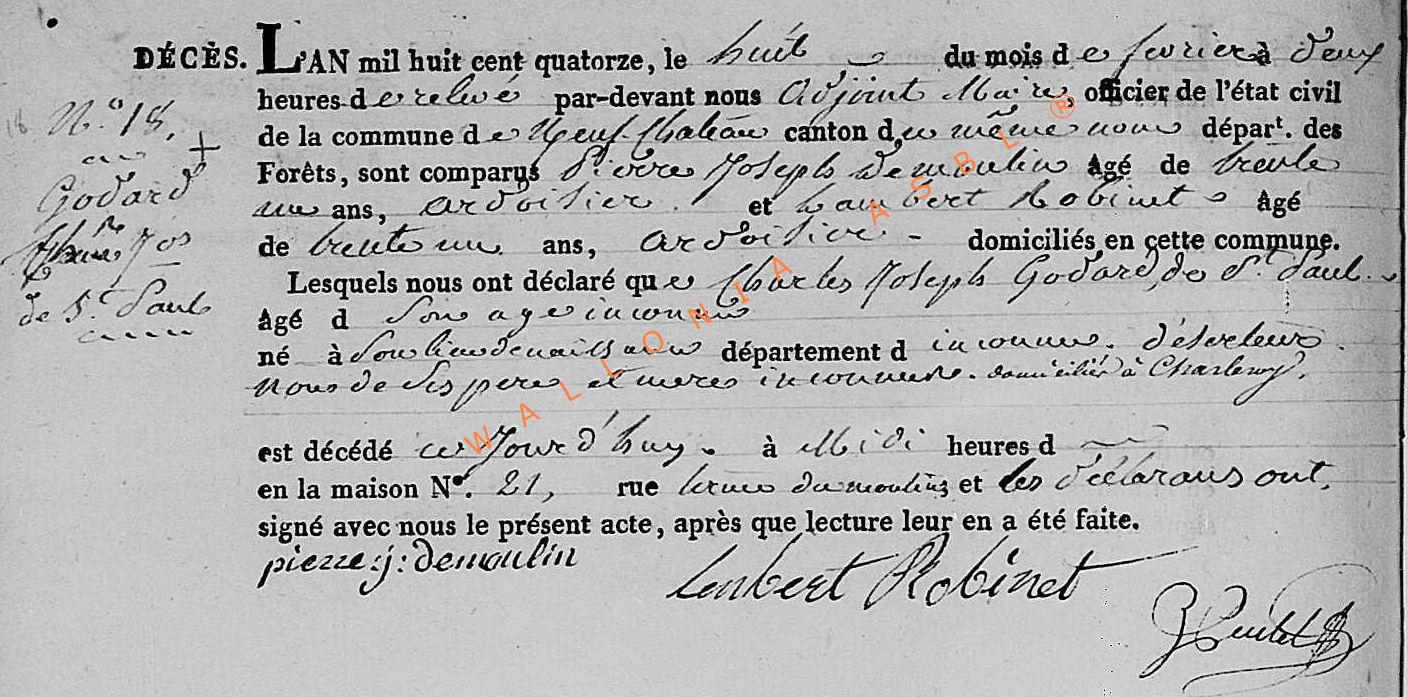 DÉCÈS. L'AN mil huit cent quatorze, le huit du mois de fevrier à deux
heures de relevé par-devant nous Adjoint Maire, officier de l'état civil
de la commune de Neufchateau canton du même nom départ. des
Forêts, sont comparus Pierre Joseph Demoulin âgé de trente
un ans, ardoisier et Lambert Robinet âgé
de trente un ans, ardoisier domiciliés en cette commune.
Lesquels nous ont déclaré que Charles Joseph Godard, de St Paul
âgé d son age inconnu
né à son lieu de naissance département d inconnu. déserteur.
noms de ses pere et meres inconnue. domicilié à Charleroy.
est décédé ce jourd'huy. à Midi heures d
en la maison N°. 21, rue du moulin et les déclarans ont
signé avec nous le présent acte, après que lecture leur en a été faite.
pierre:j:demoulin
Lenbert Robinet
18 N.° 18. +
Godard
Jos
de St Paul
WALLONIA ASBL ®